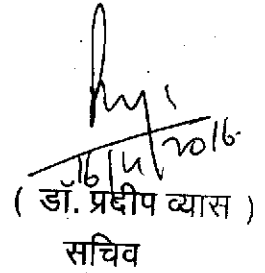 16/4/2016
( डॉ. प्रदीप व्यास )
सचिव